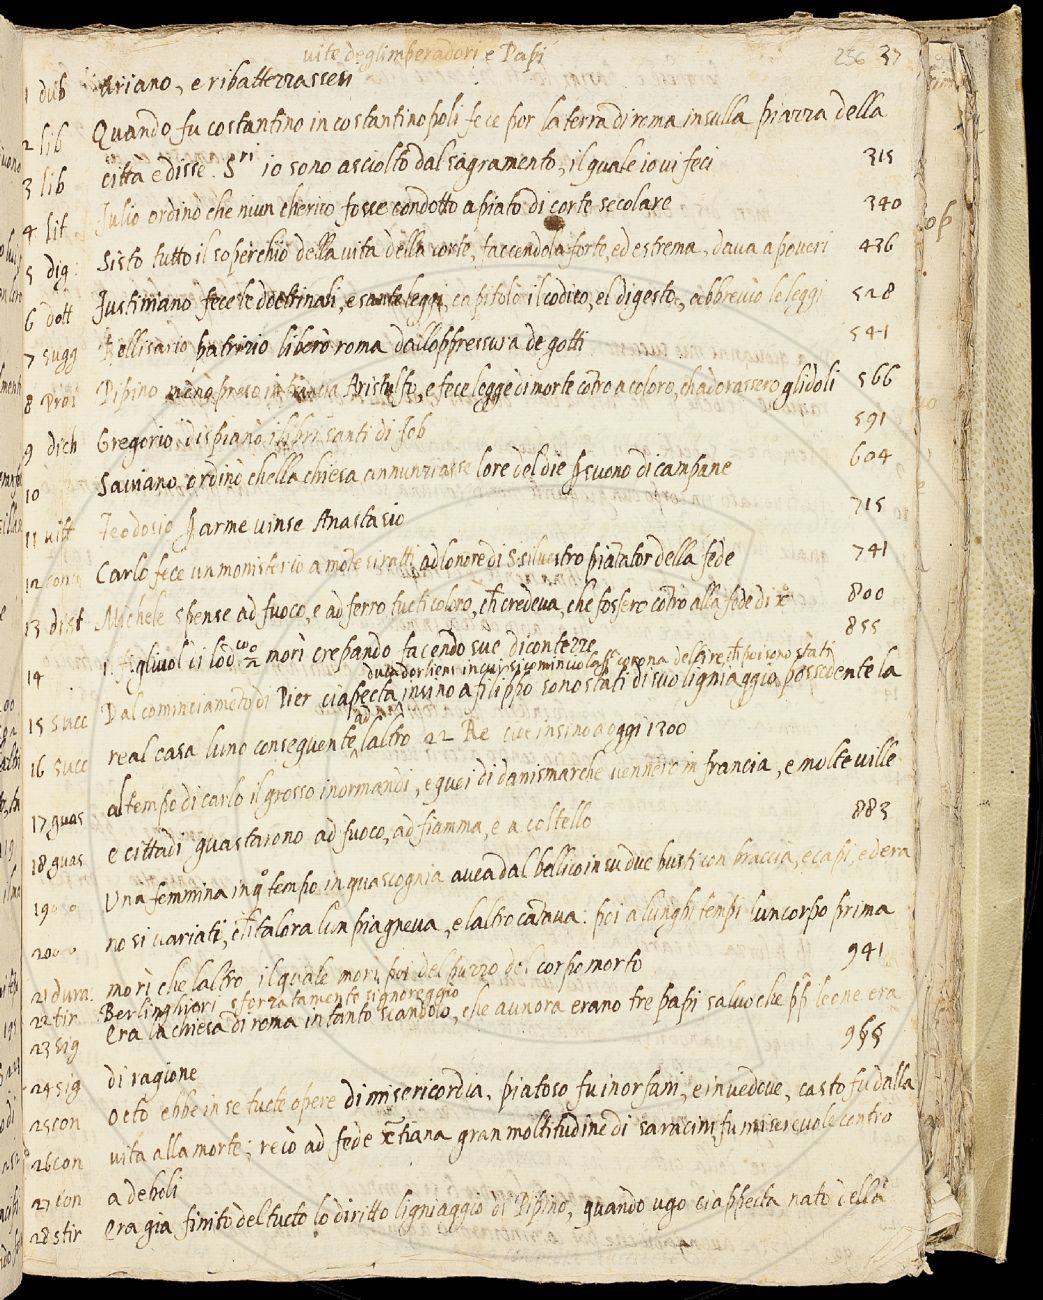 vite deglimperadori e Papi 256 37
1 dub Ariano, e ribattezzassesi
2 lib Quando fu costantino in costantinopoli fece por la terra di roma insulla piazza della
3 lib città e disse. Sri io sono asciolto dal sagramento, il quale io vi feci 315
4 lit Julio ordinò che niun cherico fosse condotto a piato di corte secolare 340
5 dig Sisto tutto il soperchio della vita della corte, faccendola forte, ed estrema, dava a poveri 436
6 dott Justiniano fece le dottrinali, e sante legi, capitolò il codico, el digesto, abbreviò le leggi 528
7 sugg Bellisario patrizio liberò roma dall oppressura de gotti 541
8 Pipino menò preso in francia Aristulfo, e fece legge di morte cotro a coloro, ch adorassero glidoli 566
9 dich Gregorio dispianò i libri santi di Job 591
10 Saviano ordinò chella chiesa annunziasse lore del die p suono di campane 604
11 vitt Teodosio p arme vinse Anastasio 715
12 conv Carlo fece un monisterio a mote siratti ad lonore di S. silvestro piatator della fede 741
13 dist Michele spense ad fuoco, e ad ferro tucti coloro, ch credeva, che fossero cotro alla fede di x 800
14 i figliuol di lodco morì crepando facendo sue dicontezze 855
duca dorliens in cui si cominciò la corona del gire, ch poi sono stati
15 succ Dal cominciameto di Pier ciapecta insino a filippo sono stati di suo ligniaggio possedente la
16 succ real casa luno conseguente laltro 22 Re cive insino a oggi 1300
17 guas al tempo di carlo il grosso inormandi, e quei di danismarche vennero in francia, e molte ville
18 guas e cittadi guastarono ad fuoco, ad fiamma, e a coltello 883
19 Una femmina in qo tempo in guascognia avea dal bellico in su due busti con braccia, e capi, ed era
20 no si variati, ch talora lun piagneva, e laltro cantava: poi a lunghi tempi lun corpo prima
21 dura. morì che laltro il quale morì poi del puzzo del corpo morto 941
22 tir Berlinghieri sforzatamente signoreggiò
23 sig era la chiesa di roma in tanto scandolo, che aunora erano tre papi salvo che pp leone era
24 sig di ragione 955
25 con octo ebbe in se tucte opere di misericordia, piatoso fu inorfani, e in vedove, casto fu dalla
26 con vita alla morte; recò ad fede xtiana gran moltitudine di saracini, fu miserevole contro
27 con a deboli
28 stir era gia finito del tucto lo diritto ligniaggio di Pipino, quando ugo ciappecta nato della